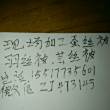 现场加工蚕丝被
羽丝被、蓝丝被
电话 15517735601
微信 213173145